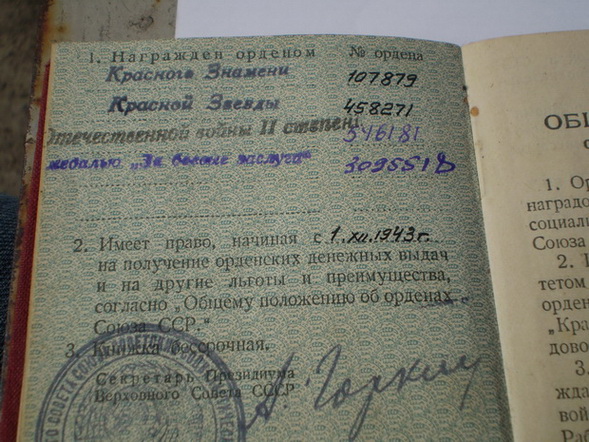 1. Награжден орденом № ордена
Красного Знамени 107879
Красной Звезды 458271
Отечественной войны II степени 546181
медалью „За боевые заслуги" 3095518
2. Имеет право, начиная с 1.XII.1943 г.
на получение орденских денежных выдач
и на другие льготы и преимущества,
согласно „Общему положению об орденах
Союза ССР."
3. Книжка бессрочная.
Секретарь Президиума
Верховного Совета СССР
А. Горкин
ОБЩ
1. Ор
наградо
социали
Союза
2.
тетом
орден
„Кра
довог
3.
жда
вой
Раб